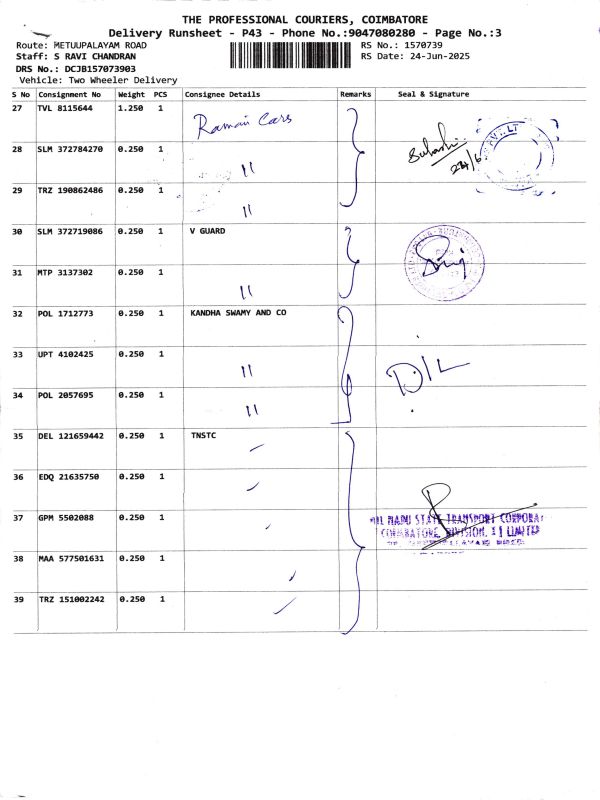 THE PROFESSIONAL COURIERS, COIMBATORE
Delivery Runsheet - P43 - Phone No.:9047080280 - Page No.:3
Route: METUUPALAYAM ROAD
RS No.: 1570739
Staff: S RAVI CHANDRAN
RS Date: 24-Jun-2025
DRS No.: DCJB157073903
Vehicle: Two Wheeler Delivery
S No Consignment No Weight PCS Consignee Details Remarks Seal & Signature
27 TVL 8115644 1.250 1 Raman Cars
28 SLM 372784270 0.250 1 "
24/6
29 TRZ 190862486 0.250 1 "
30 SLM 372719086 0.250 1 V GUARD
31 MTP 3137302 0.250 1 "
32 POL 1712773 0.250 1 KANDHA SWAMY AND CO
33 UPT 4102425 0.250 1 "
34 POL 2057695 0.250 1 "
35 DEL 121659442 0.250 1 TNSTC
36 EDQ 21635750 0.250 1
37 GPM 5502088 0.250 1
NADU STATE TRANSPORT CORPORA
COIMBATORE DIVISION. II LIMITED
38 MAA 577501631 0.250 1
39 TRZ 151002242 0.250 1